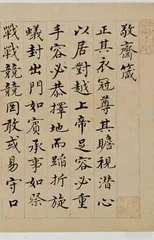 敬齋箴
正其衣冠尊其瞻視潛心
以居對越上帝足容必重
手容必恭擇地而蹈折旋
蟻封出門如賓承事如祭
戰戰兢兢罔敢或易守口